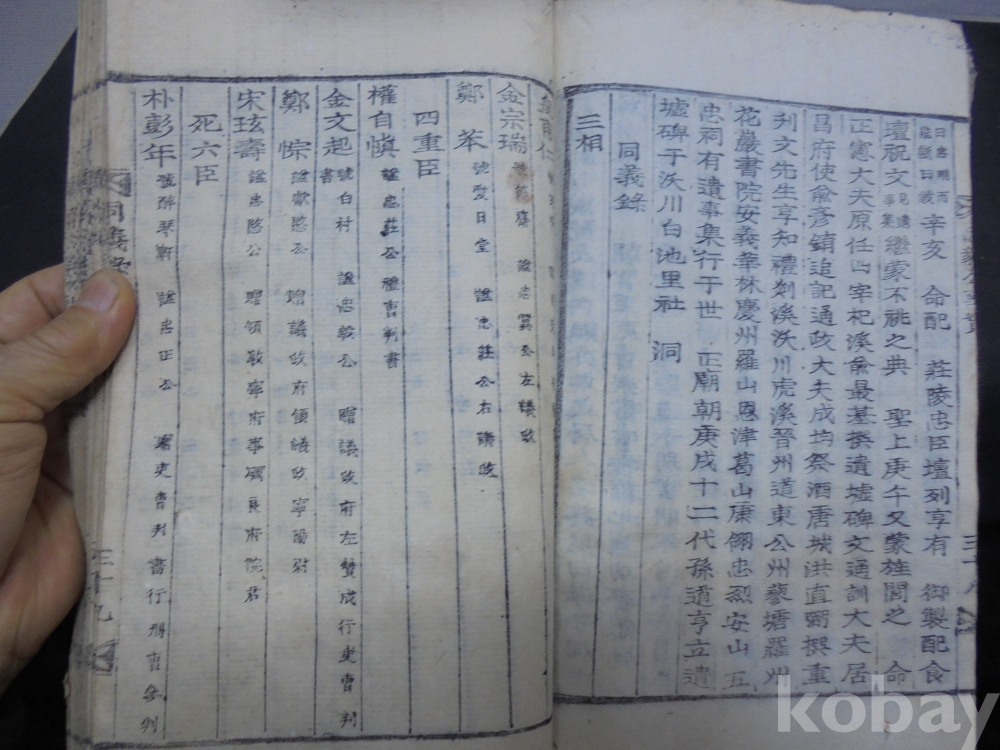 辛亥 命配 莊陵忠臣壇列享有 御製配食
壇祝文 繼蒙不祧之典 聖上庚午又蒙旌閭之 命
正憲大夫原任 宰杞溪兪最基撰遺墟碑文通訓大夫居
昌府使兪彦銷追記通政大夫成均祭酒唐城洪直弼撰重
刋文先生享知禮剡溪沃川虎溪晉州道東公州蓼塘羅州
花巖書院安義華林慶州羅山恩津葛山康翎忠烈安山五
忠祠有遺事集行于世 正廟朝庚戌十二代孫道亨立遺
墟碑于沃川白池里社 洞
同義錄
三相
金宗瑞 號節齋 謚忠翼公左議政
鄭苯 號愛日堂 謚忠莊公右議政
四重臣
權自愼 謚忠莊公禮曹判書
金文起 號白村 謚忠毅公 贈議政府左贊成行吏曹判書
鄭悰 謚獻愍公 贈議政府領議政寧陽尉
宋玹壽 謚忠愍公 贈領敦寧府事礪良府院君
死六臣
朴彭年 號醉琴軒 謚忠正公 贈吏曹判書行刑曹參判
三十八
三十九
kobay